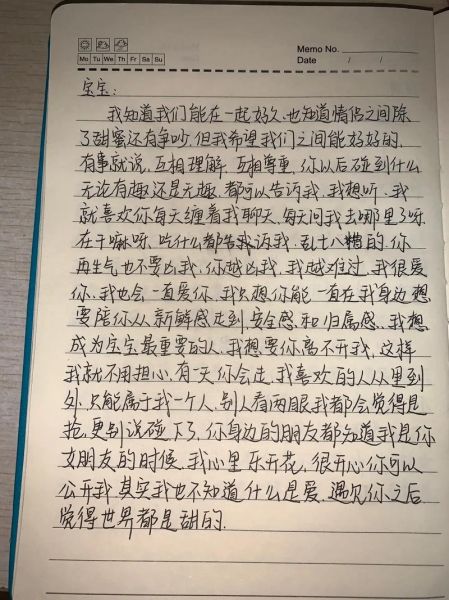 Memo No.
Mo Tu We Th Fr Sa Su
Date / /
宝宝:
我知道我们能在一起好久.也知道情侣之间除
了甜蜜还有争吵.但我希望我们之间能好好的.
有事就说.互相理解.互相尊重.你以后碰到什么
无论有趣还是无趣.都可以告诉我.我想听.我
就喜欢你每天缠着我聊天.每天问我去哪里了呀
在干嘛呀.吃什么都告我诉我.乱七八糟的.你
再生气也不要凶我.你越凶我.我越难过.我很爱
你.我也会一直爱你.我只想你能一直在我身边.想
要陪你从新鲜感走到.安全感.和归属感.我想
成为宝宝最重要的人.我想要你离不开我.这样
我就不用担心.有一天你会走.我喜欢的人从里到
外.只能属于我一个人.别人看两眼我都会觉得是
抢.更别说碰下了.你身边的朋友都知道我是你
女朋友的时候.我心里乐开花.很开心你可以
公开我.其实我也不知道什么是爱.遇见你之后
觉得世界都是甜的.